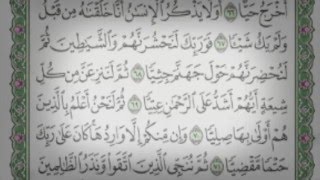 أُخْرَجُ حَيًّا ﴿٦٦﴾ أَوَلَا يَذْكُرُ الْإِنسَٰنُ أَنَّا خَلَقْنَٰهُ مِن قَبْلُ
وَلَمْ يَكُ شَيْـًٔا ﴿٦٧﴾ فَوَرَبِّكَ لَنَحْشُرَنَّهُمْ وَالشَّيَٰطِينَ ثُمَّ
لَنُحْضِرَنَّهُمْ حَوْلَ جَهَنَّمَ جِثِيًّا ﴿٦٨﴾ ثُمَّ لَنَنزِعَنَّ مِن كُلِّ
شِيعَةٍ أَيُّهُمْ أَشَدُّ عَلَى الرَّحْمَٰنِ عِتِيًّا ﴿٦٩﴾ ثُمَّ لَنَحْنُ أَعْلَمُ بِالَّذِينَ
هُمْ أَوْلَىٰ بِهَا صِلِيًّا ﴿٧٠﴾ وَإِن مِّنكُمْ إِلَّا وَارِدُهَا كَانَ عَلَىٰ رَبِّكَ
حَتْمًا مَّقْضِيًّا ﴿٧١﴾ ثُمَّ نُنَجِّي الَّذِينَ اتَّقَوا وَّنَذَرُ الظَّٰلِمِينَ